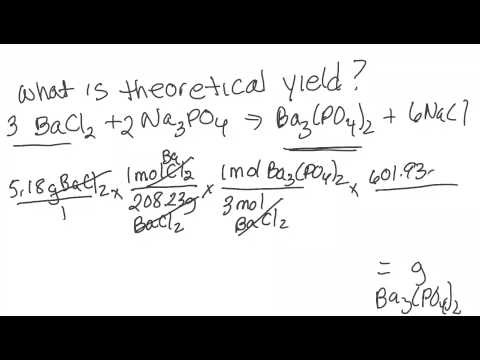 what is theoretical yield?
3 BaCl₂ + 2 Na₃PO₄ ⇒ Ba₃(PO₄)₂ + 6NaCl
5.18g BaCl₂/1 × 1mol BaCl₂/208.23g BaCl₂ × 1mol Ba₃(PO₄)₂/3mol BaCl₂ × 601.93
= g
Ba₃(PO₄)₂